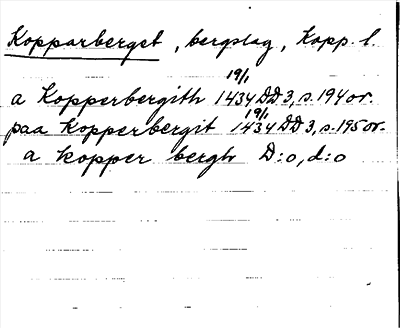 Kopparberget, bergslag, Kopp. l.
a Kopperbergith 19/1 1434 DD 3, s. 194 or.
paa Kopperbergit 19/1 1434 DD 3, s. 195 or.
a kopper bergh D:o, d:o